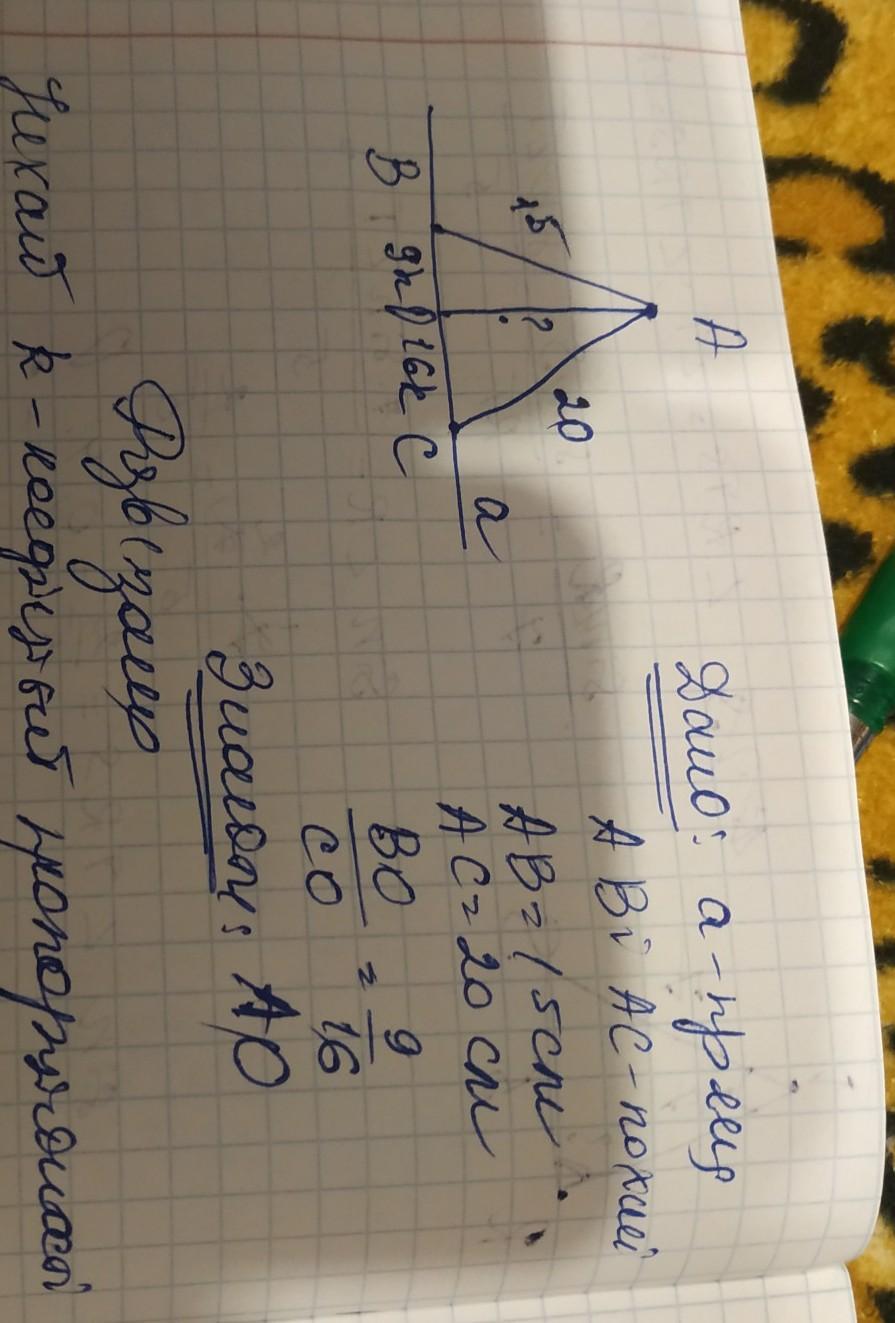 A
15
20
?
B 9k O 16k C
a
Дано: a - пряма
AB і AC - похилі
AB = 15 см
AC = 20 см
BO/CO = 9/16
Знайти: AO
Розв'язання
Нехай k - коефіцієнт пропорційності